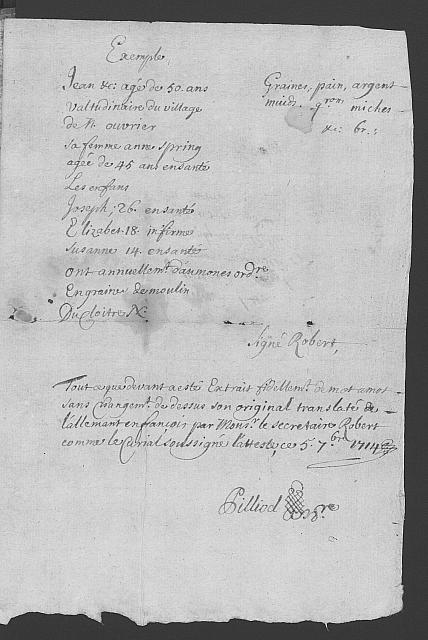 Exemple,
Jean &c: agé de 50. ans
Valtudinaire du village
de N. ouvrier
sa femme anne spring
agée de 45 ans en santé
Les enfans
Joseph; 26. en santé
Elizabet. 18. infirme
Susanne 14. en santé
ont annuellemt. d'aumones ordre
En graine de moulin
Du Cloitre N:
Graines, pain, argent
muids. qrons miches
&c: br.:
Signé Robert,
Tout ce que devant a esté Extrait fidellemt. de mot a mot
sans changemt. de dessus son original translaté de
l'allemant en françois par Monsr. le secretaire Robert
comme le Curial soussigné l'atteste, ce 5. 7bre 1714
Pilliod